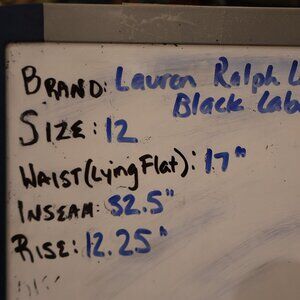 BRAND: Lauren Ralph L
Black Lab
SIZE: 12
WAIST (Lying Flat): 17"
INSEAM: 32.5"
RISE: 12.25"